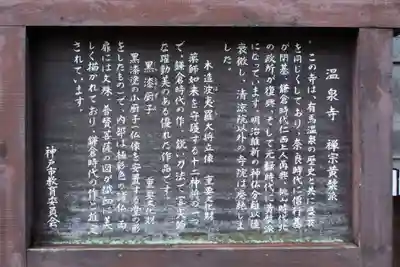 温泉寺　禅宗黄檗派
この寺は、有馬温泉の歴史と共に盛衰
を同じくしており、奈良時代に僧行基
が開基、鎌倉時代仁西上人再興、桃山時代北
の政所が復興、そして元禄時代に黄檗派
になっています。明治維新の神仏分離以後
衰微し、清涼院以外の寺院は廃絶しま
した。
木造波夷羅大将立像　重要文化財
薬師如来を守護する十二神将の一つ
で、鎌倉時代の作。鋭い刀法で、写実的
な躍動美のある優れた作品です。
黒漆厨子　重要文化財
黒漆塗の小厨子（仏像を安置する堂の形
をしたもの）で、内部は極彩色の諸仏、両
扉には文殊、普賢菩薩の図が繊細に美
しく描かれており、鎌倉時代の作と推定
されています。
神戸市教育委員会